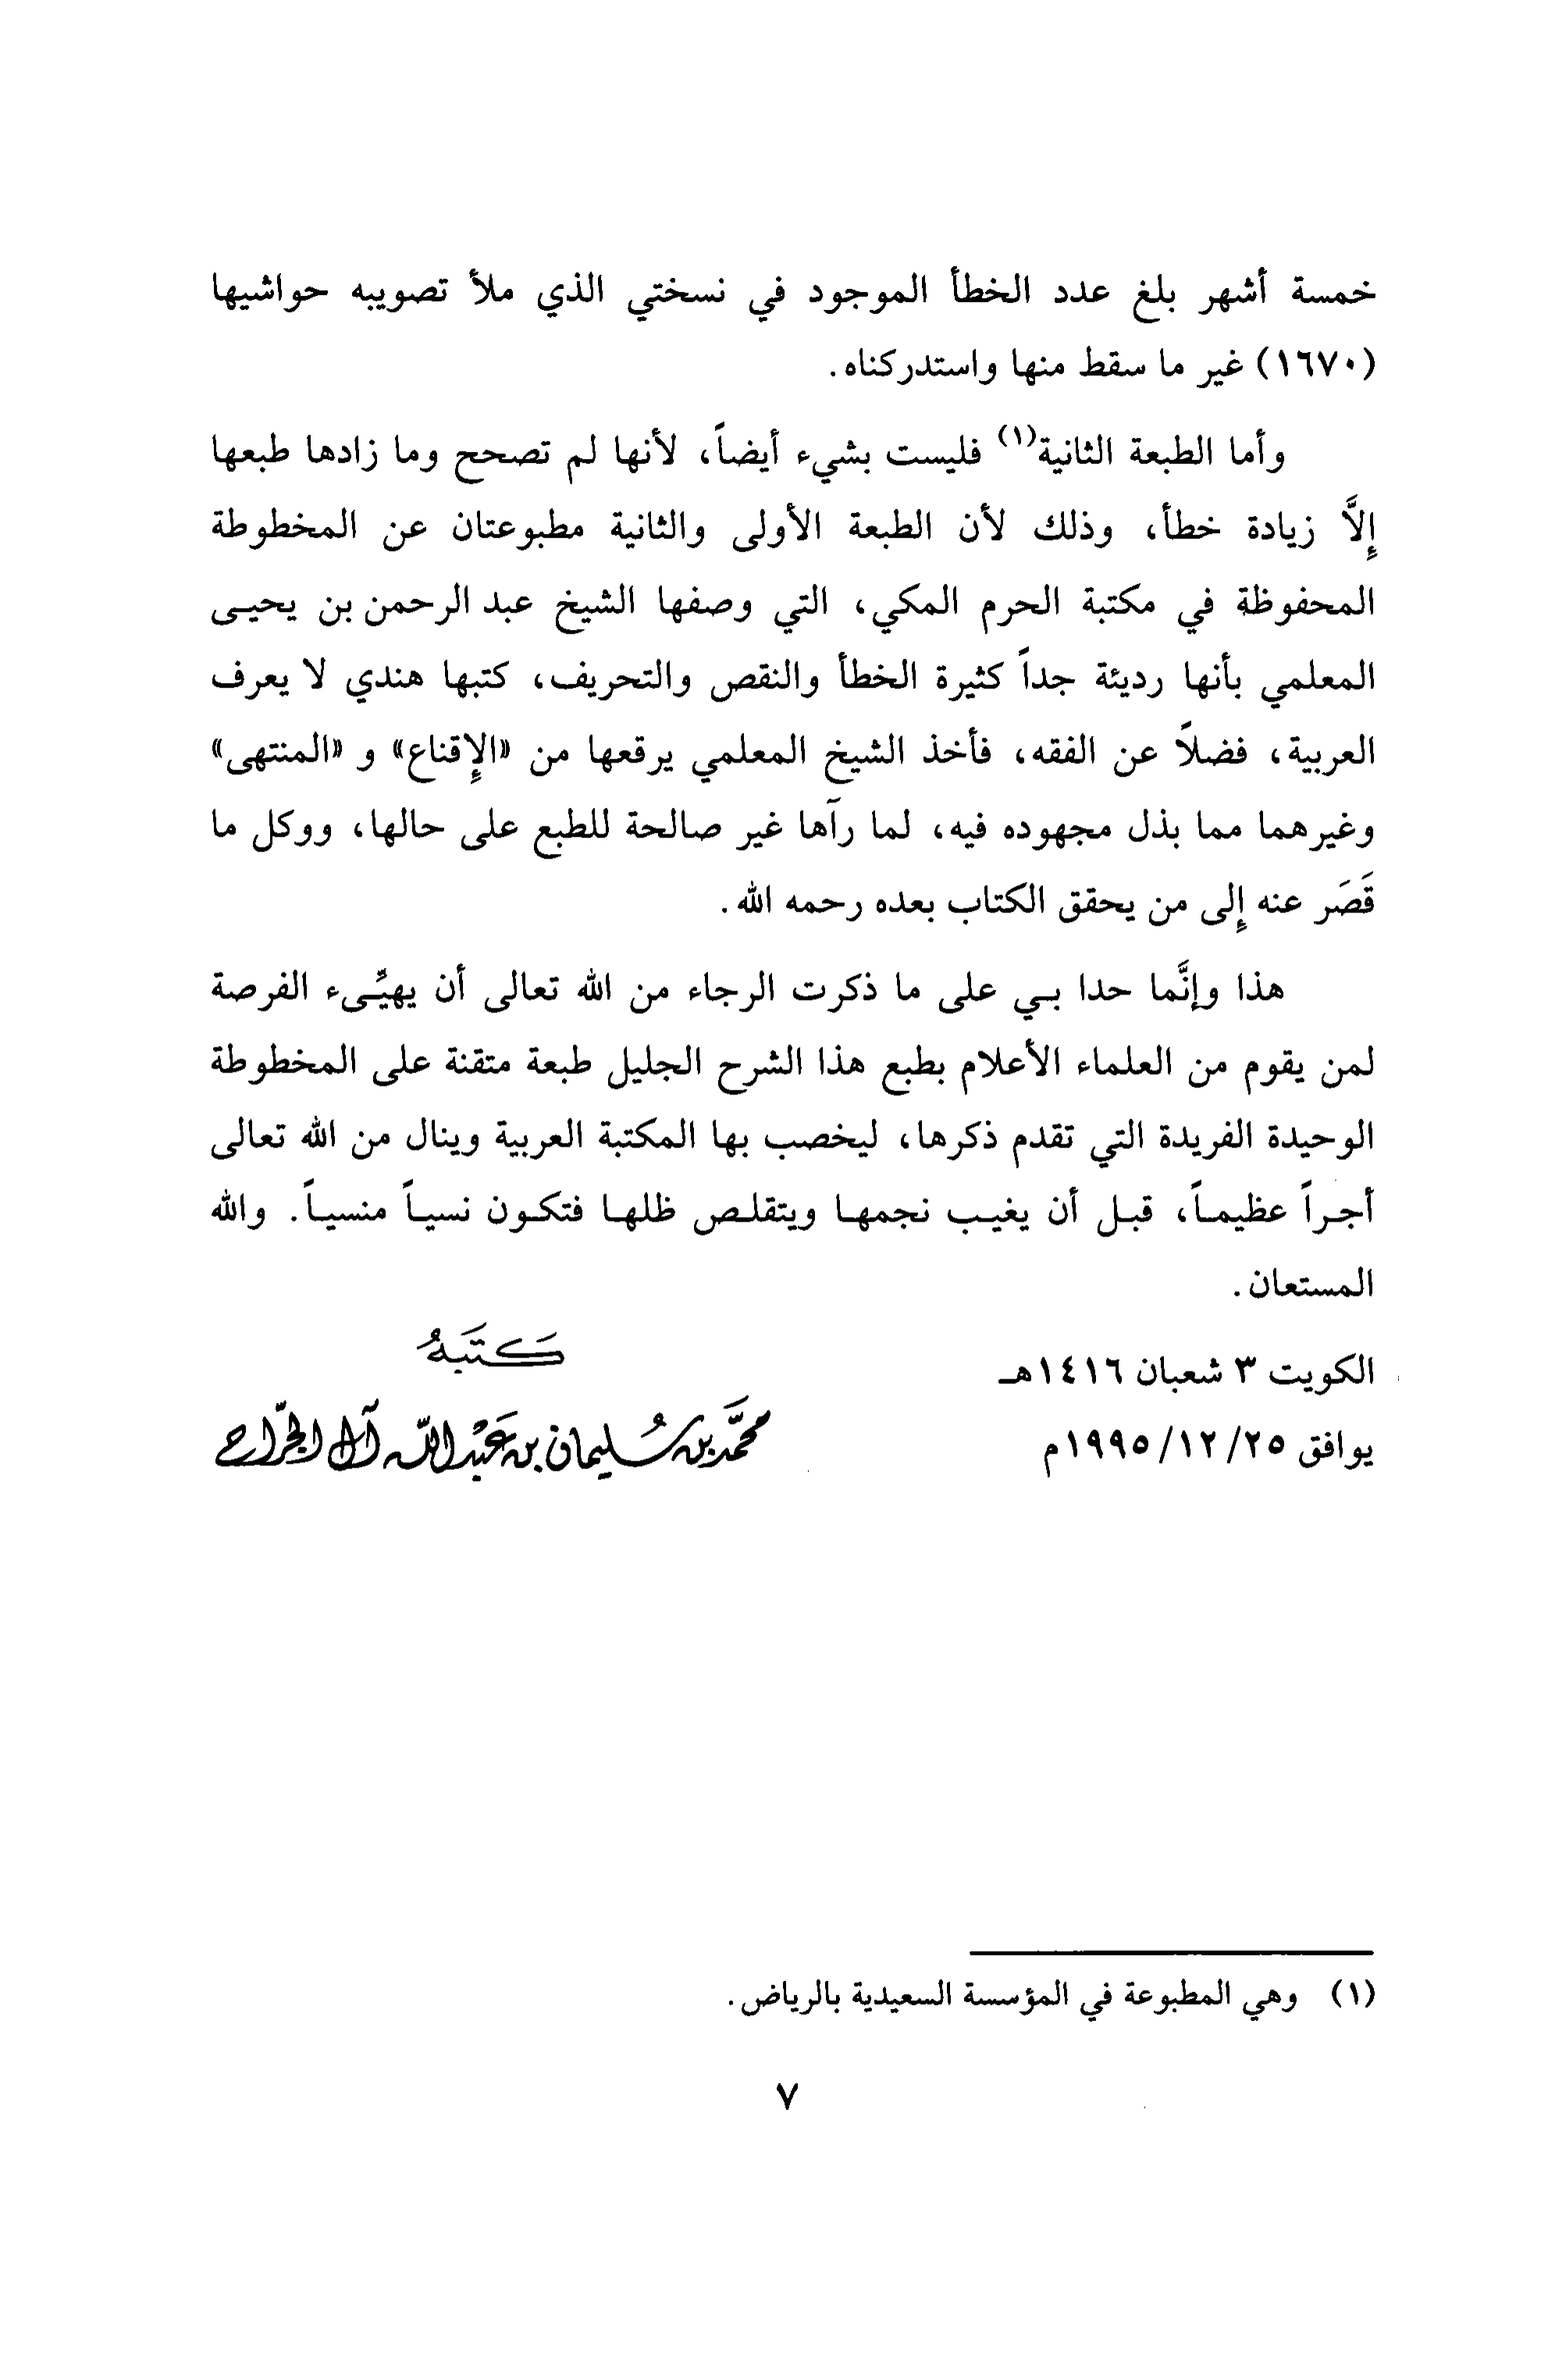 خمسة أشهر بلغ عدد الخطأ الموجود في نسختي الذي ملأ تصويبه حواشيها
(١٦٧٠) غير ما سقط منها واستدركناه.
وأما الطبعة الثانية(١) فليست بشيء أيضاً، لأنها لم تصحح وما زادها طبعها
إِلاَّ زيادة خطأ، وذلك لأن الطبعة الأولى والثانية مطبوعتان عن المخطوطة
المحفوظة في مكتبة الحرم المكي، التي وصفها الشيخ عبد الرحمن بن يحيـى
المعلمي بأنها رديئة جداً كثيرة الخطأ والنقص والتحريف، كتبها هندي لا يعرف
العربية، فضلاً عن الفقه، فأخذ الشيخ المعلمي يرقعها من «الإِقناع» و «المنتهى»
وغيرهما مما بذل مجهوده فيه، لما رآها غير صالحة للطبع على حالها، ووكل ما
قَصَر عنه إِلى من يحقق الكتاب بعده رحمه الله.
هذا وإنَّما حدا بـي على ما ذكرت الرجاء من الله تعالى أن يهيِّـىء الفرصة
لمن يقوم من العلماء الأعلام بطبع هذا الشرح الجليل طبعة متقنة على المخطوطة
الوحيدة الفريدة التي تقدم ذكرها، ليخصب بها المكتبة العربية وينال من الله تعالى
أجـراً عظيمـاً، قبـل أن يغيـب نجمهـا ويتقلـص ظلهـا فتكـون نسيـاً منسيـاً. والله
المستعان.
الكويت ٣ شعبان ١٤١٦هـ
يوافق ٢٥/١٢/١٩٩٥م
كَتَبَهُ
محمَّد بن سُليمان بن عَبْد اللّه آل الجرّاح
(١) وهي المطبوعة في المؤسسة السعيدية بالرياض.
٧